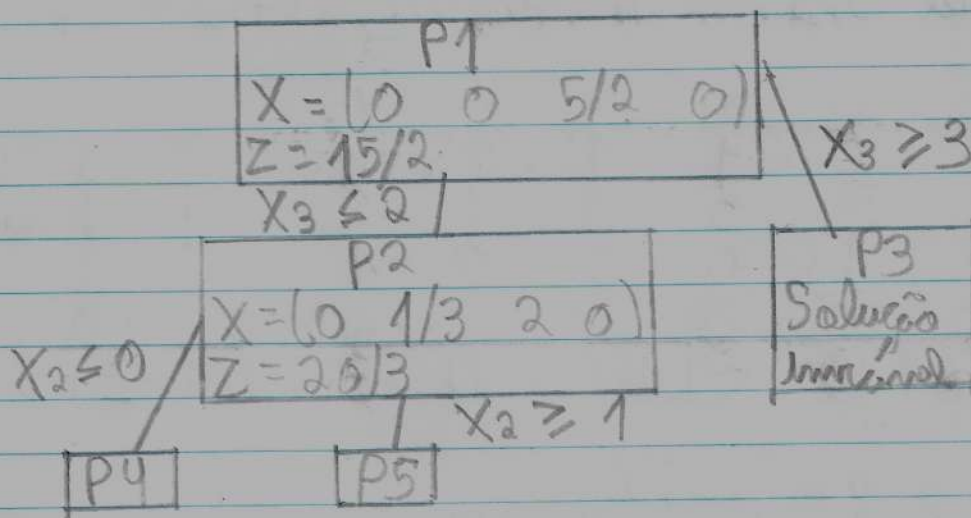 P1
X = (0 0 5/2 0)
Z = 15/2
X3 ≥ 3
X3 ≤ 2
P2
X = (0 1/3 2 0)
Z = 20/3
P3
Solução
X2 ≤ 0
X2 ≥ 1
P4
P5